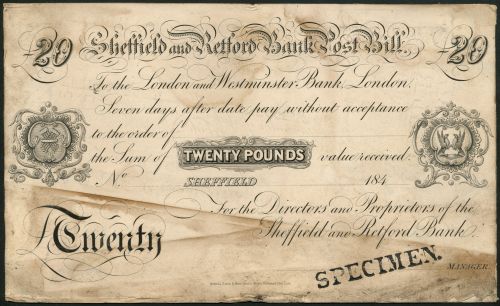 £20 Sheffield and Retford Bank Post Bill. £20
To the London and Westminster Bank, London.
Seven days after date pay without acceptance
to the order of
the Sum of TWENTY POUNDS value received.
No SHEFFIELD 184
For the Directors and Proprietors of the
£Twenty Sheffield and Retford Bank
SPECIMEN.
MANAGER.